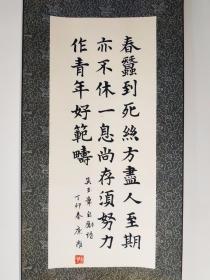 春蠶到死絲方盡人至期
亦不休一息尚存須努力
作青年好範疇
吳玉章自勵詩
丁卯春